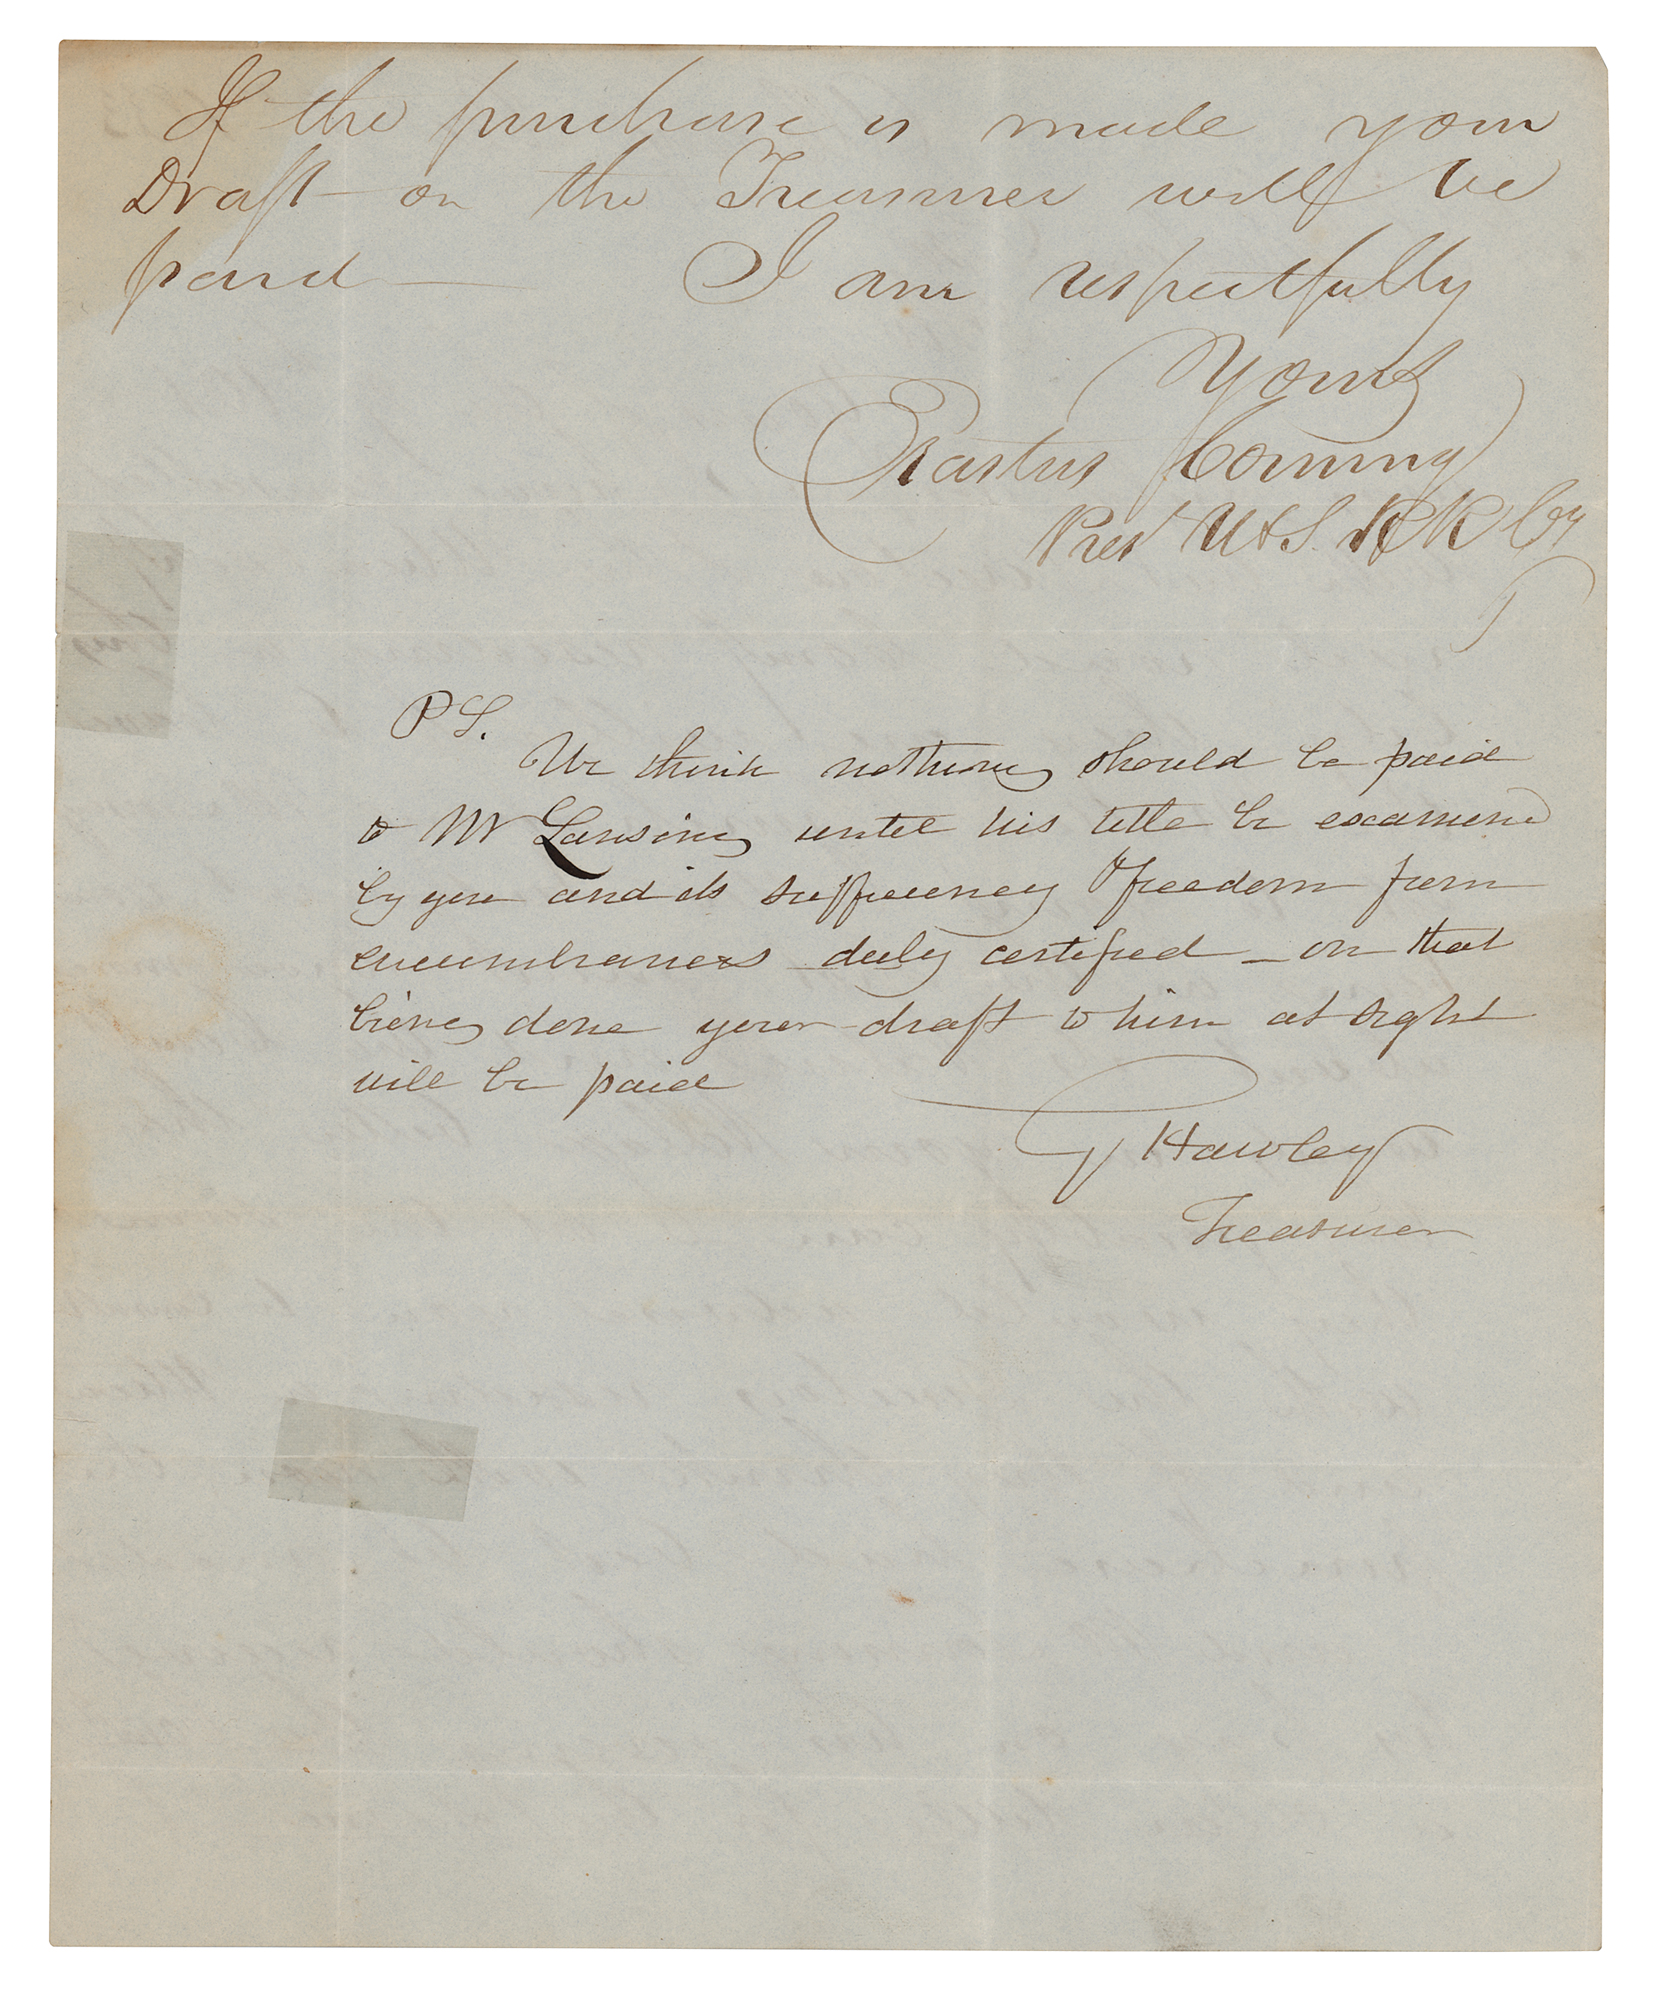 If the purchase is made your
Draft on the Treasurer will be
paid — I am respectfully
Yours
Erastus Corning
Prest U & S. R R Cy
PS.
We think nothing should be paid
to Mr Lansing until his title be examined
by you and its sufficiency & freedom from
encumbrances duly certified — on that
being done your draft to him at sight
will be paid
G Hawley
Treasurer